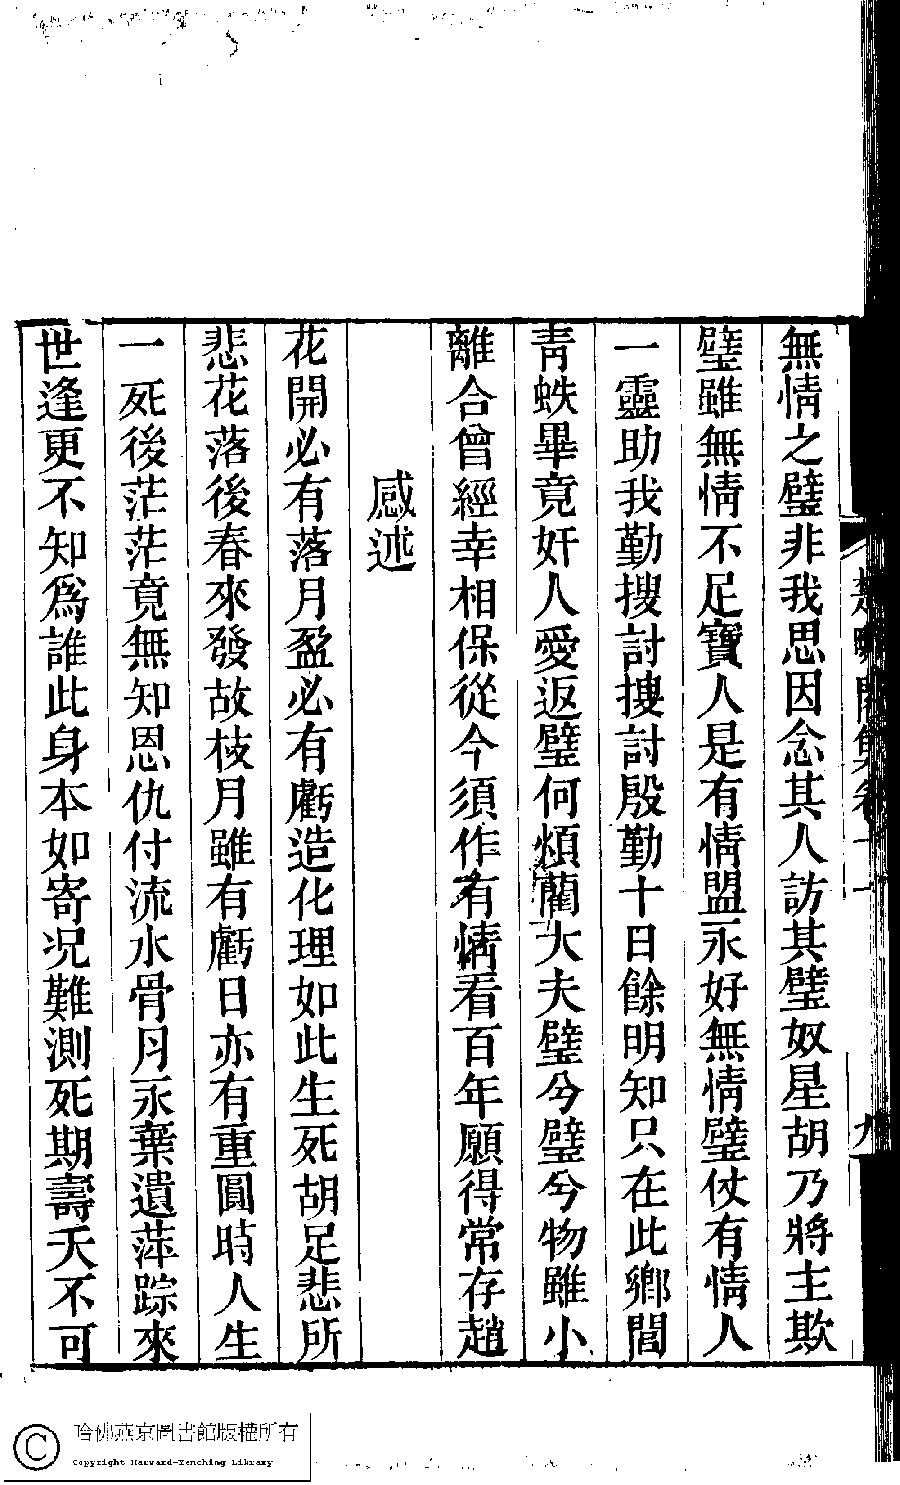 無情之璧非我思因念其人訪其璧奴星胡乃將主欺
璧雖無情不足寶人是有情盟永好無情璧仗有情人
一靈助我勤搜討摟討殷勤十日餘明知只在此鄉閭
青蚨畢竟奸人愛返璧何煩藺大夫璧兮璧兮物雖小
離合曾經幸相保從今須作有情看百年願得常存趙
感述
花開必有落月盈必有虧造化理如此生死胡足悲所
悲花落後春來發故枝月雖有虧日亦有重圓時人生
一死後茫茫竟無知恩仇付流水骨月永棄遺萍踪來
世逢更不知為誰此身本如寄况難測死期壽夭不可
九
哈佛燕京圖書館版權所有
Copyright Harvard-Yenching Library